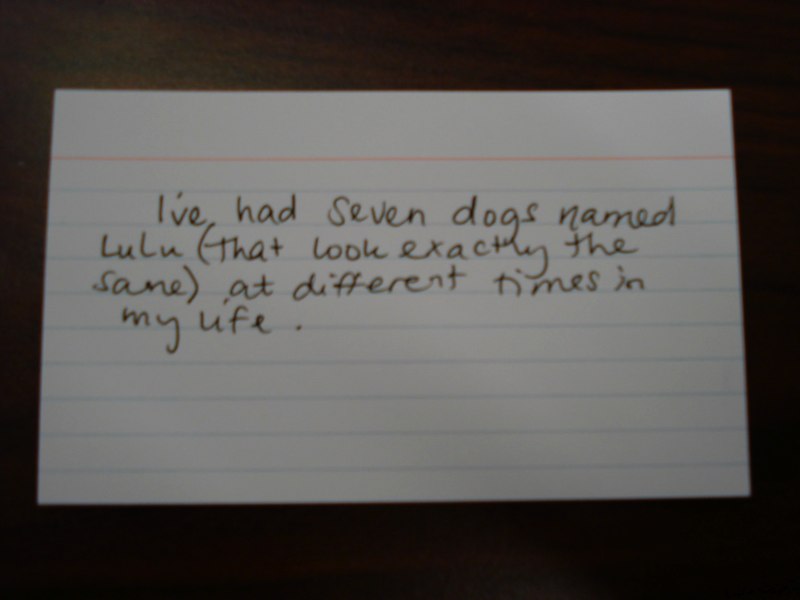 I've had seven dogs named
Lulu (that look exactly the
same) at different times in
my life.